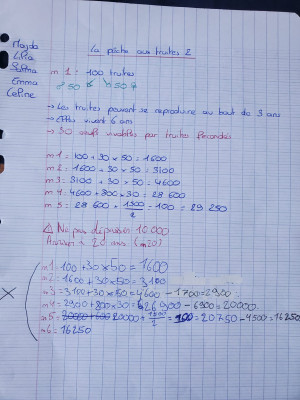 Majda
Lilia
Salma
Emma
Celine
La pêche aux truites 2
m 1 : 100 truites
50 50
→ Les truites peuvent se reproduire au bout de 3 ans
→ Elles vivent 6 ans
→ 30 oeufs viables par truites fécondées
m1 = 100 + 30 × 50 = 1600
m2 = 1600 + 30 × 50 = 3100
m3 = 3100 + 30 × 50 = 4600
m4 = 4600 + 800 × 30 = 28 600
m5 = 28 600 + 1500/2 = 100 = 29 250
⚠ Ne pas dépasser 10 000
à 20 ans (m20)
m1 = 100 + 30 × 50 = 1600
m2 = 1600 + 30 × 50 = 3100
m3 = 3100 + 30 × 50 = 4600 - 1700 = 2900
m4 = 2900 + 800 × 30 = 26 900 - 6900 = 20000
m5 = 20000 + 1500/2 = 100 = 20750 - 4500 = 16250
m6 = 16250